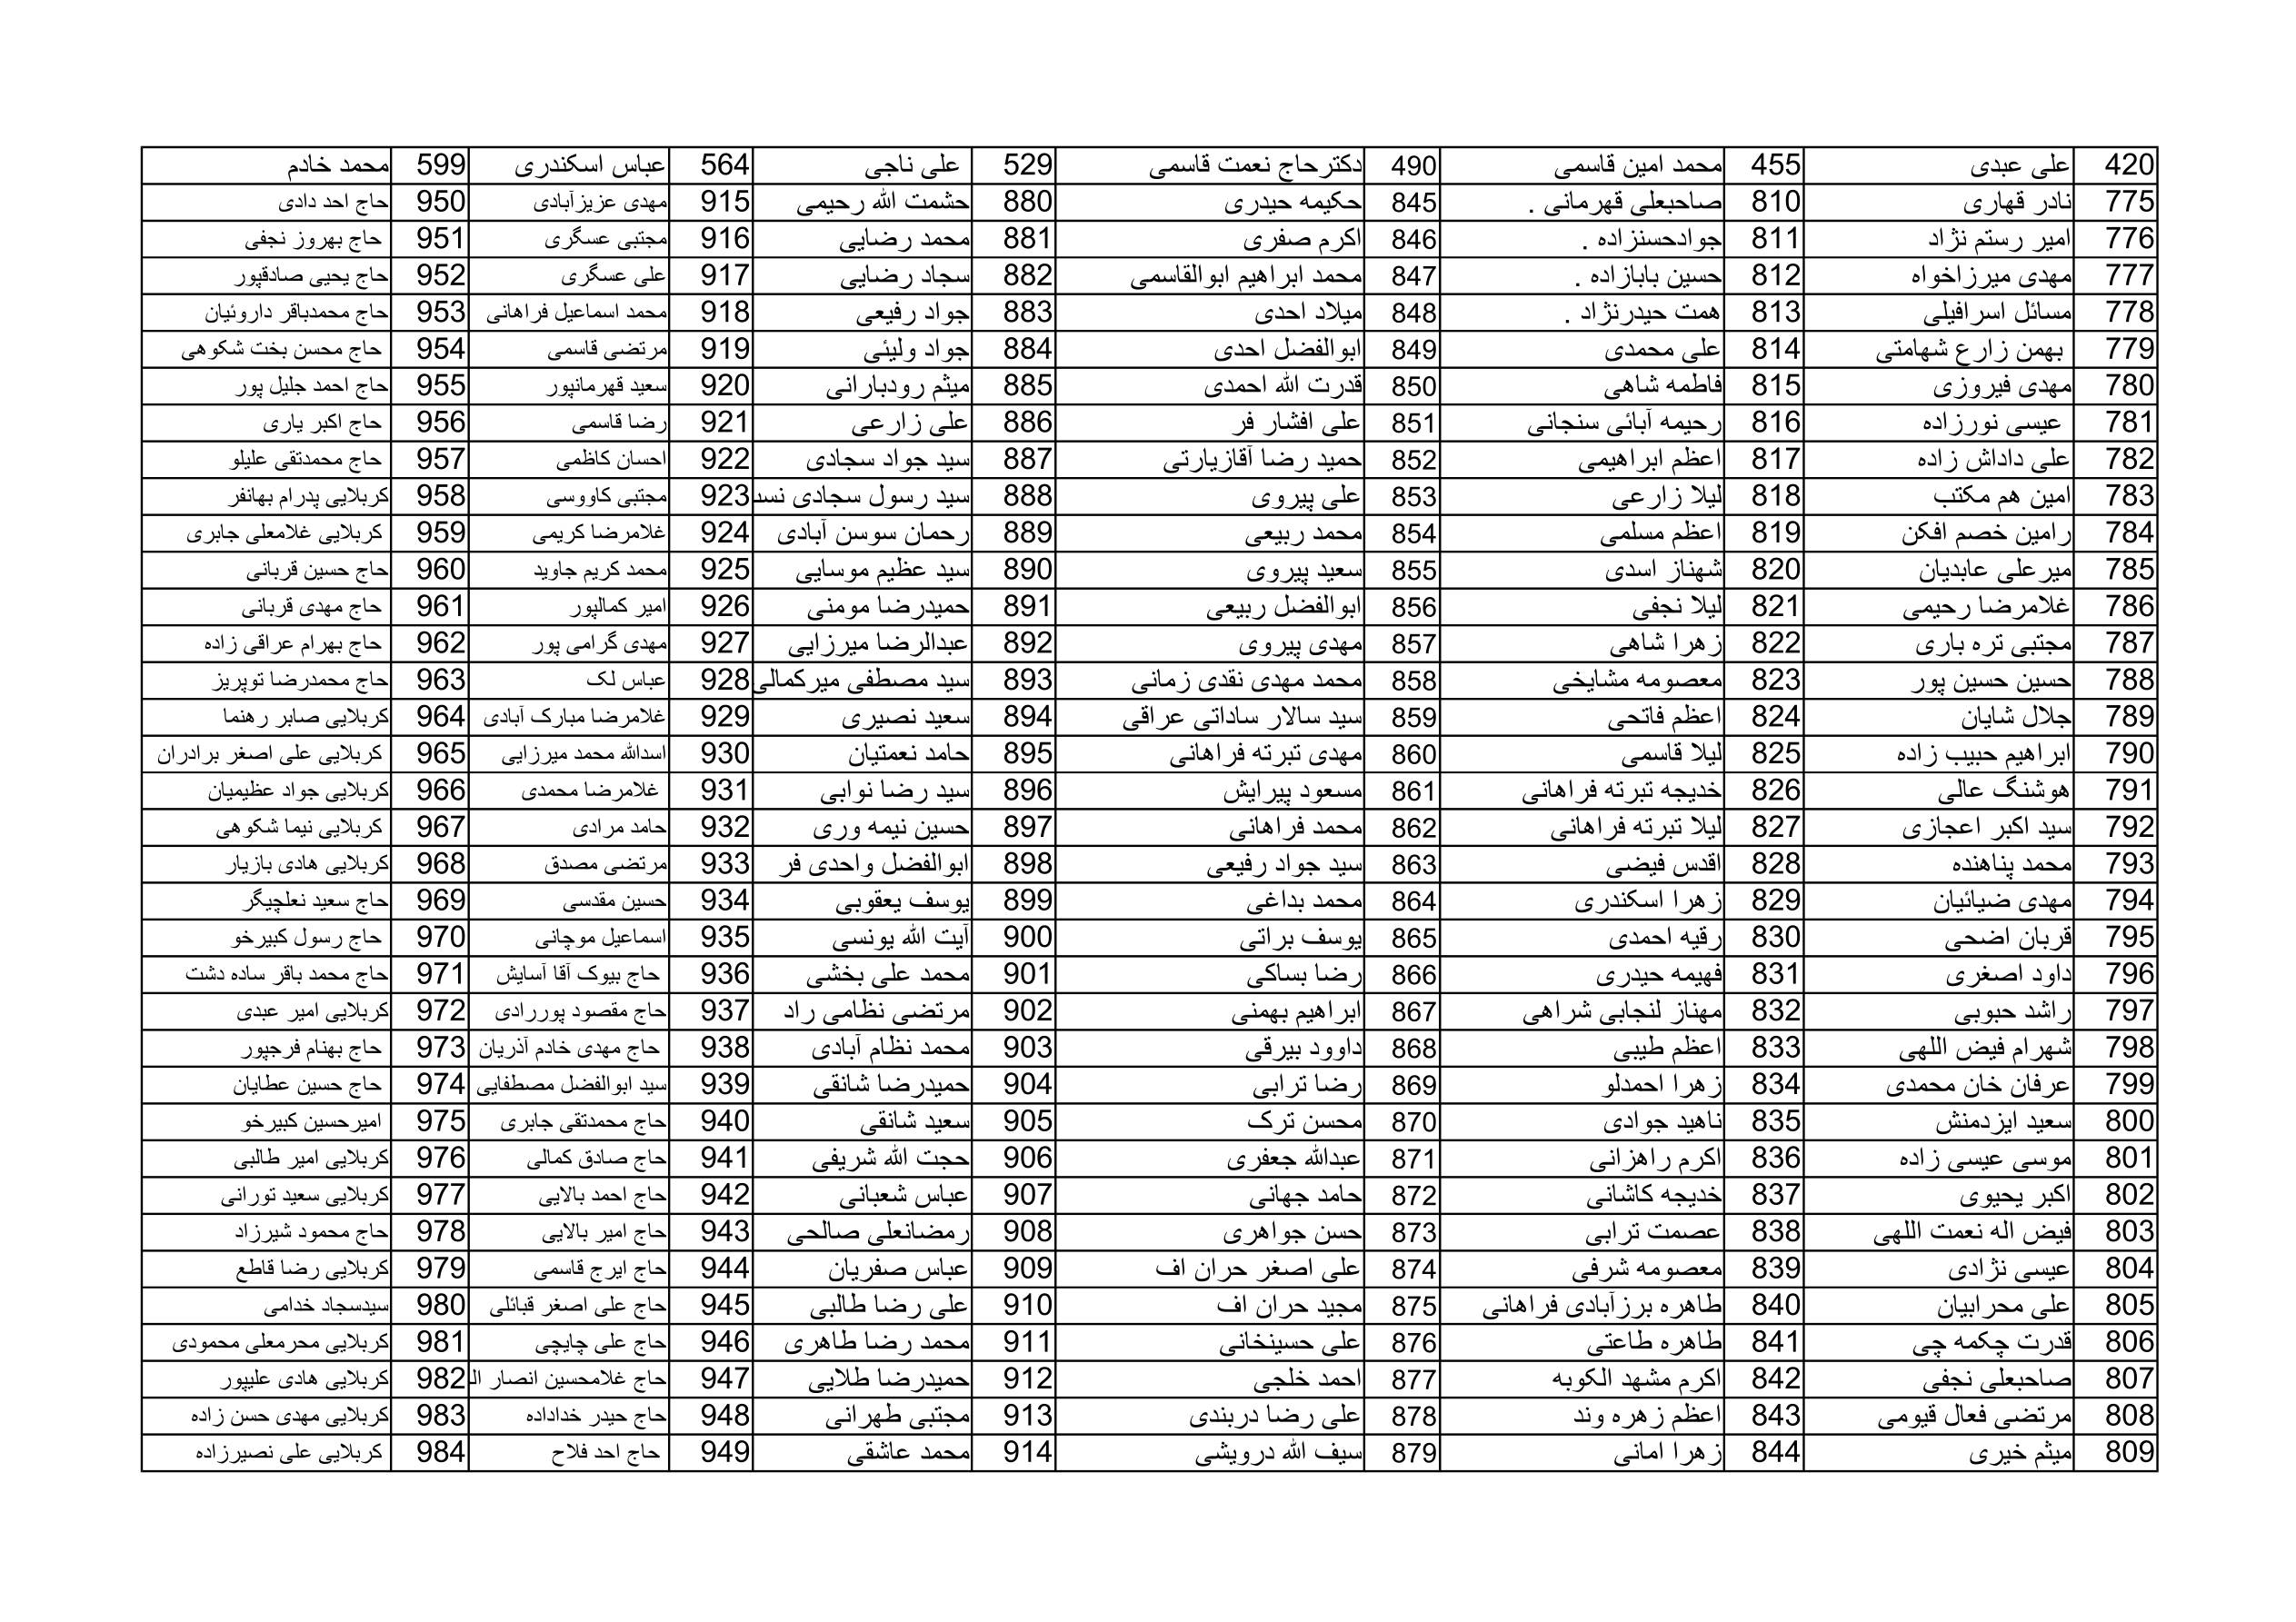 420 علی عبدی 455 محمد امین قاسمی 490 دکترحاج نعمت قاسمی 529 علی ناجی 564 عباس اسکندری 599 محمد خادم
775 نادر قهاری 810 صاحبعلی قهرمانی . 845 حکیمه حیدری 880 حشمت الله رحیمی 915 مهدی عزیزآبادی 950 حاج احد دادی
776 امیر رستم نژاد 811 جوادحسنزاده . 846 اکرم صفری 881 محمد رضایی 916 مجتبی عسگری 951 حاج بهروز نجفی
777 مهدی میرزاخواه 812 حسین بابازاده . 847 محمد ابراهیم ابوالقاسمی 882 سجاد رضایی 917 علی عسگری 952 حاج یحیی صادقپور
778 مسائل اسرافیلی 813 همت حیدرنژاد . 848 میلاد احدی 883 جواد رفیعی 918 محمد اسماعیل فراهانی 953 حاج محمدباقر داروئیان
779 بهمن زارع شهامتی 814 علی محمدی 849 ابوالفضل احدی 884 جواد ولیئی 919 مرتضی قاسمی 954 حاج محسن بخت شکوهی
780 مهدی فیروزی 815 فاطمه شاهی 850 قدرت الله احمدی 885 میثم رودبارانی 920 سعید قهرمانپور 955 حاج احمد جلیل پور
781 عیسی نورزاده 816 رحیمه آبائی سنجانی 851 علی افشار فر 886 علی زارعی 921 رضا قاسمی 956 حاج اکبر یاری
782 علی داداش زاده 817 اعظم ابراهیمی 852 حمید رضا آقازیارتی 887 سید جواد سجادی 922 احسان کاظمی 957 حاج محمدتقی علیلو
783 امین هم مکتب 818 لیلا زارعی 853 علی پیروی 888 سید رسول سجادی نسد 923 مجتبی کاووسی 958 کربلایی پدرام بهانفر
784 رامین خصم افکن 819 اعظم مسلمی 854 محمد ربیعی 889 رحمان سوسن آبادی 924 غلامرضا کریمی 959 کربلایی غلامعلی جابری
785 میرعلی عابدیان 820 شهناز اسدی 855 سعید پیروی 890 سید عظیم موسایی 925 محمد کریم جاوید 960 حاج حسین قربانی
786 غلامرضا رحیمی 821 لیلا نجفی 856 ابوالفضل ربیعی 891 حمیدرضا مومنی 926 امیر کمالپور 961 حاج مهدی قربانی
787 مجتبی تره باری 822 زهرا شاهی 857 مهدی پیروی 892 عبدالرضا میرزایی 927 مهدی گرامی پور 962 حاج بهرام عراقی زاده
788 حسین حسین پور 823 معصومه مشایخی 858 محمد مهدی نقدی زمانی 893 سید مصطفی میرکمالی 928 عباس لک 963 حاج محمدرضا توپریز
789 جلال شایان 824 اعظم فاتحی 859 سید سالار ساداتی عراقی 894 سعید نصیری 929 غلامرضا مبارک آبادی 964 کربلایی صابر رهنما
790 ابراهیم حبیب زاده 825 لیلا قاسمی 860 مهدی تبرته فراهانی 895 حامد نعمتیان 930 اسدالله محمد میرزایی 965 کربلایی علی اصغر برادران
791 هوشنگ عالی 826 خدیجه تبرته فراهانی 861 مسعود پیرایش 896 سید رضا نوابی 931 غلامرضا محمدی 966 کربلایی جواد عظیمیان
792 سید اکبر اعجازی 827 لیلا تبرته فراهانی 862 محمد فراهانی 897 حسین نیمه وری 932 حامد مرادی 967 کربلایی نیما شکوهی
793 محمد پناهنده 828 اقدس فیضی 863 سید جواد رفیعی 898 ابوالفضل واحدی فر 933 مرتضی مصدق 968 کربلایی هادی بازیار
794 مهدی ضیائیان 829 زهرا اسکندری 864 محمد بداغی 899 یوسف یعقوبی 934 حسین مقدسی 969 حاج سعید نعلچیگر
795 قربان اضحی 830 رقیه احمدی 865 یوسف براتی 900 آیت الله یونسی 935 اسماعیل موچانی 970 حاج رسول کبیرخو
796 داود اصغری 831 فهیمه حیدری 866 رضا بساکی 901 محمد علی بخشی 936 حاج بیوک آقا آسایش 971 حاج محمد باقر ساده دشت
797 راشد حبوبی 832 مهناز لنجابی شراهی 867 ابراهیم بهمنی 902 مرتضی نظامی راد 937 حاج مقصود پوررادی 972 کربلایی امیر عبدی
798 شهرام فیض اللهی 833 اعظم طیبی 868 داوود بیرقی 903 محمد نظام آبادی 938 حاج مهدی خادم آذریان 973 حاج بهنام فرجپور
799 عرفان خان محمدی 834 زهرا احمدلو 869 رضا ترابی 904 حمیدرضا شانقی 939 سید ابوالفضل مصطفایی 974 حاج حسین عطایان
800 سعید ایزدمنش 835 ناهید جوادی 870 محسن ترک 905 سعید شانقی 940 حاج محمدتقی جابری 975 امیرحسین کبیرخو
801 موسی عیسی زاده 836 اکرم راهزانی 871 عبدالله جعفری 906 حجت الله شریفی 941 حاج صادق کمالی 976 کربلایی امیر طالبی
802 اکبر یحیوی 837 خدیجه کاشانی 872 حامد جهانی 907 عباس شعبانی 942 حاج احمد بالایی 977 کربلایی سعید تورانی
803 فیض اله نعمت اللهی 838 عصمت ترابی 873 حسن جواهری 908 رمضانعلی صالحی 943 حاج امیر بالایی 978 حاج محمود شیرزاد
804 عیسی نژادی 839 معصومه شرفی 874 علی اصغر حران اف 909 عباس صفریان 944 حاج ایرج قاسمی 979 کربلایی رضا قاطع
805 علی محرابیان 840 طاهره برزآبادی فراهانی 875 مجید حران اف 910 علی رضا طالبی 945 حاج علی اصغر قبائلی 980 سیدسجاد خدامی
806 قدرت چکمه چی 841 طاهره طاعتی 876 علی حسینخانی 911 محمد رضا طاهری 946 حاج علی چایچی 981 کربلایی محرمعلی محمودی
807 صاحبعلی نجفی 842 اکرم مشهد الکوبه 877 احمد خلجی 912 حمیدرضا طلایی 947 حاج غلامحسین انصار ال 982 کربلایی هادی علیپور
808 مرتضی فعال قیومی 843 اعظم زهره وند 878 علی رضا دربندی 913 مجتبی طهرانی 948 حاج حیدر خداداده 983 کربلایی مهدی حسن زاده
809 میثم خیری 844 زهرا امانی 879 سیف الله درویشی 914 محمد عاشقی 949 حاج احد فلاح 984 کربلایی علی نصیرزاده